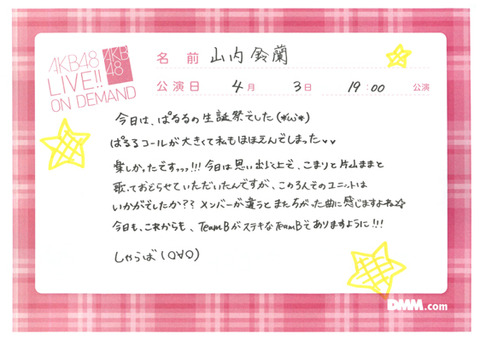 AKB48
LIVE!!
ON DEMAND
AKB
48
名前 山内鈴蘭
公演日 4月 3日 19:00 公演
今日は、ぱるるの生誕祭でした(*'ω'*)
ぱるるコールが大きくて私もほほえんでしまった♥♥
楽しかったですっっ!!!今日は思い出し上で、こまりと片山ままと
歌っておどらせていただいたんですが、この3人でのユニットは
いかがでしたか??メンバーが違うとまた方がった曲に感じますよね☆
今日も、これからも、TeamBがステキなTeamBでありますように!!!
しゃらば(O∀O)
DMM.com